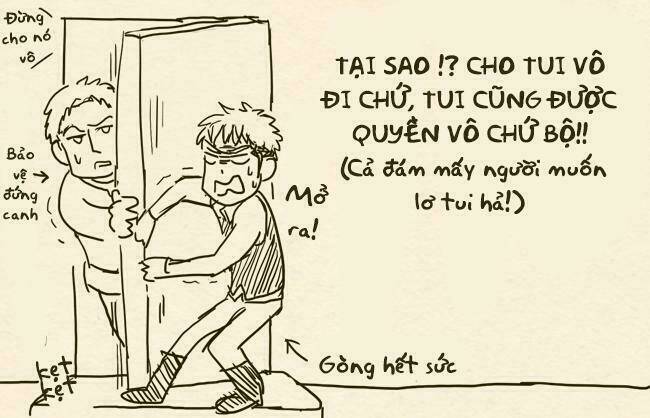 Đừng
cho nó
vô
Bảo
vệ
đứng
canh
TẠI SAO !? CHO TUI VÔ
ĐI CHỨ, TUI CŨNG ĐƯỢC
QUYỀN VÔ CHỨ BỘ!!
(Cả đám mấy người muốn
lơ tui hả!)
Mở
ra!
Gồng hết sức
kẹt
kẹt